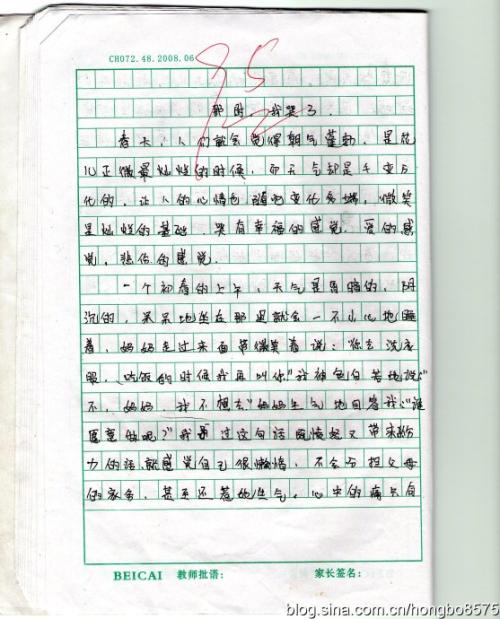 CH072.48.2008.06
95
那时,我哭了.
春天,人们就会觉得朝气蓬勃,是花
儿正微最灿烂的时候,而天气却是千变万
化的,让人的心情也随他变化多端,微笑
是灿烂的基础,哭有幸福的感觉,爱的感
觉,悲伤的感觉.
一个初春的上午,天气是昏暗的,阴
沉的,呆呆地坐在那里就会一不小心地睡
着,妈妈走过来面带微笑着说:"你去洗衣
服,吃饭的时候我再叫你"我神色自若地说:"
不,妈妈,我不想去"妈妈生气地回答我:"谁
愿意做呢?"我 过这句话 愤怒又带来
力的话就感觉自己很懒惰,不会分担父母
的家务,甚至还惹她生气,心中的痛只自
BEICAI 教师批语: 家长签名:
blog.sina.com.cn/hongbo8575